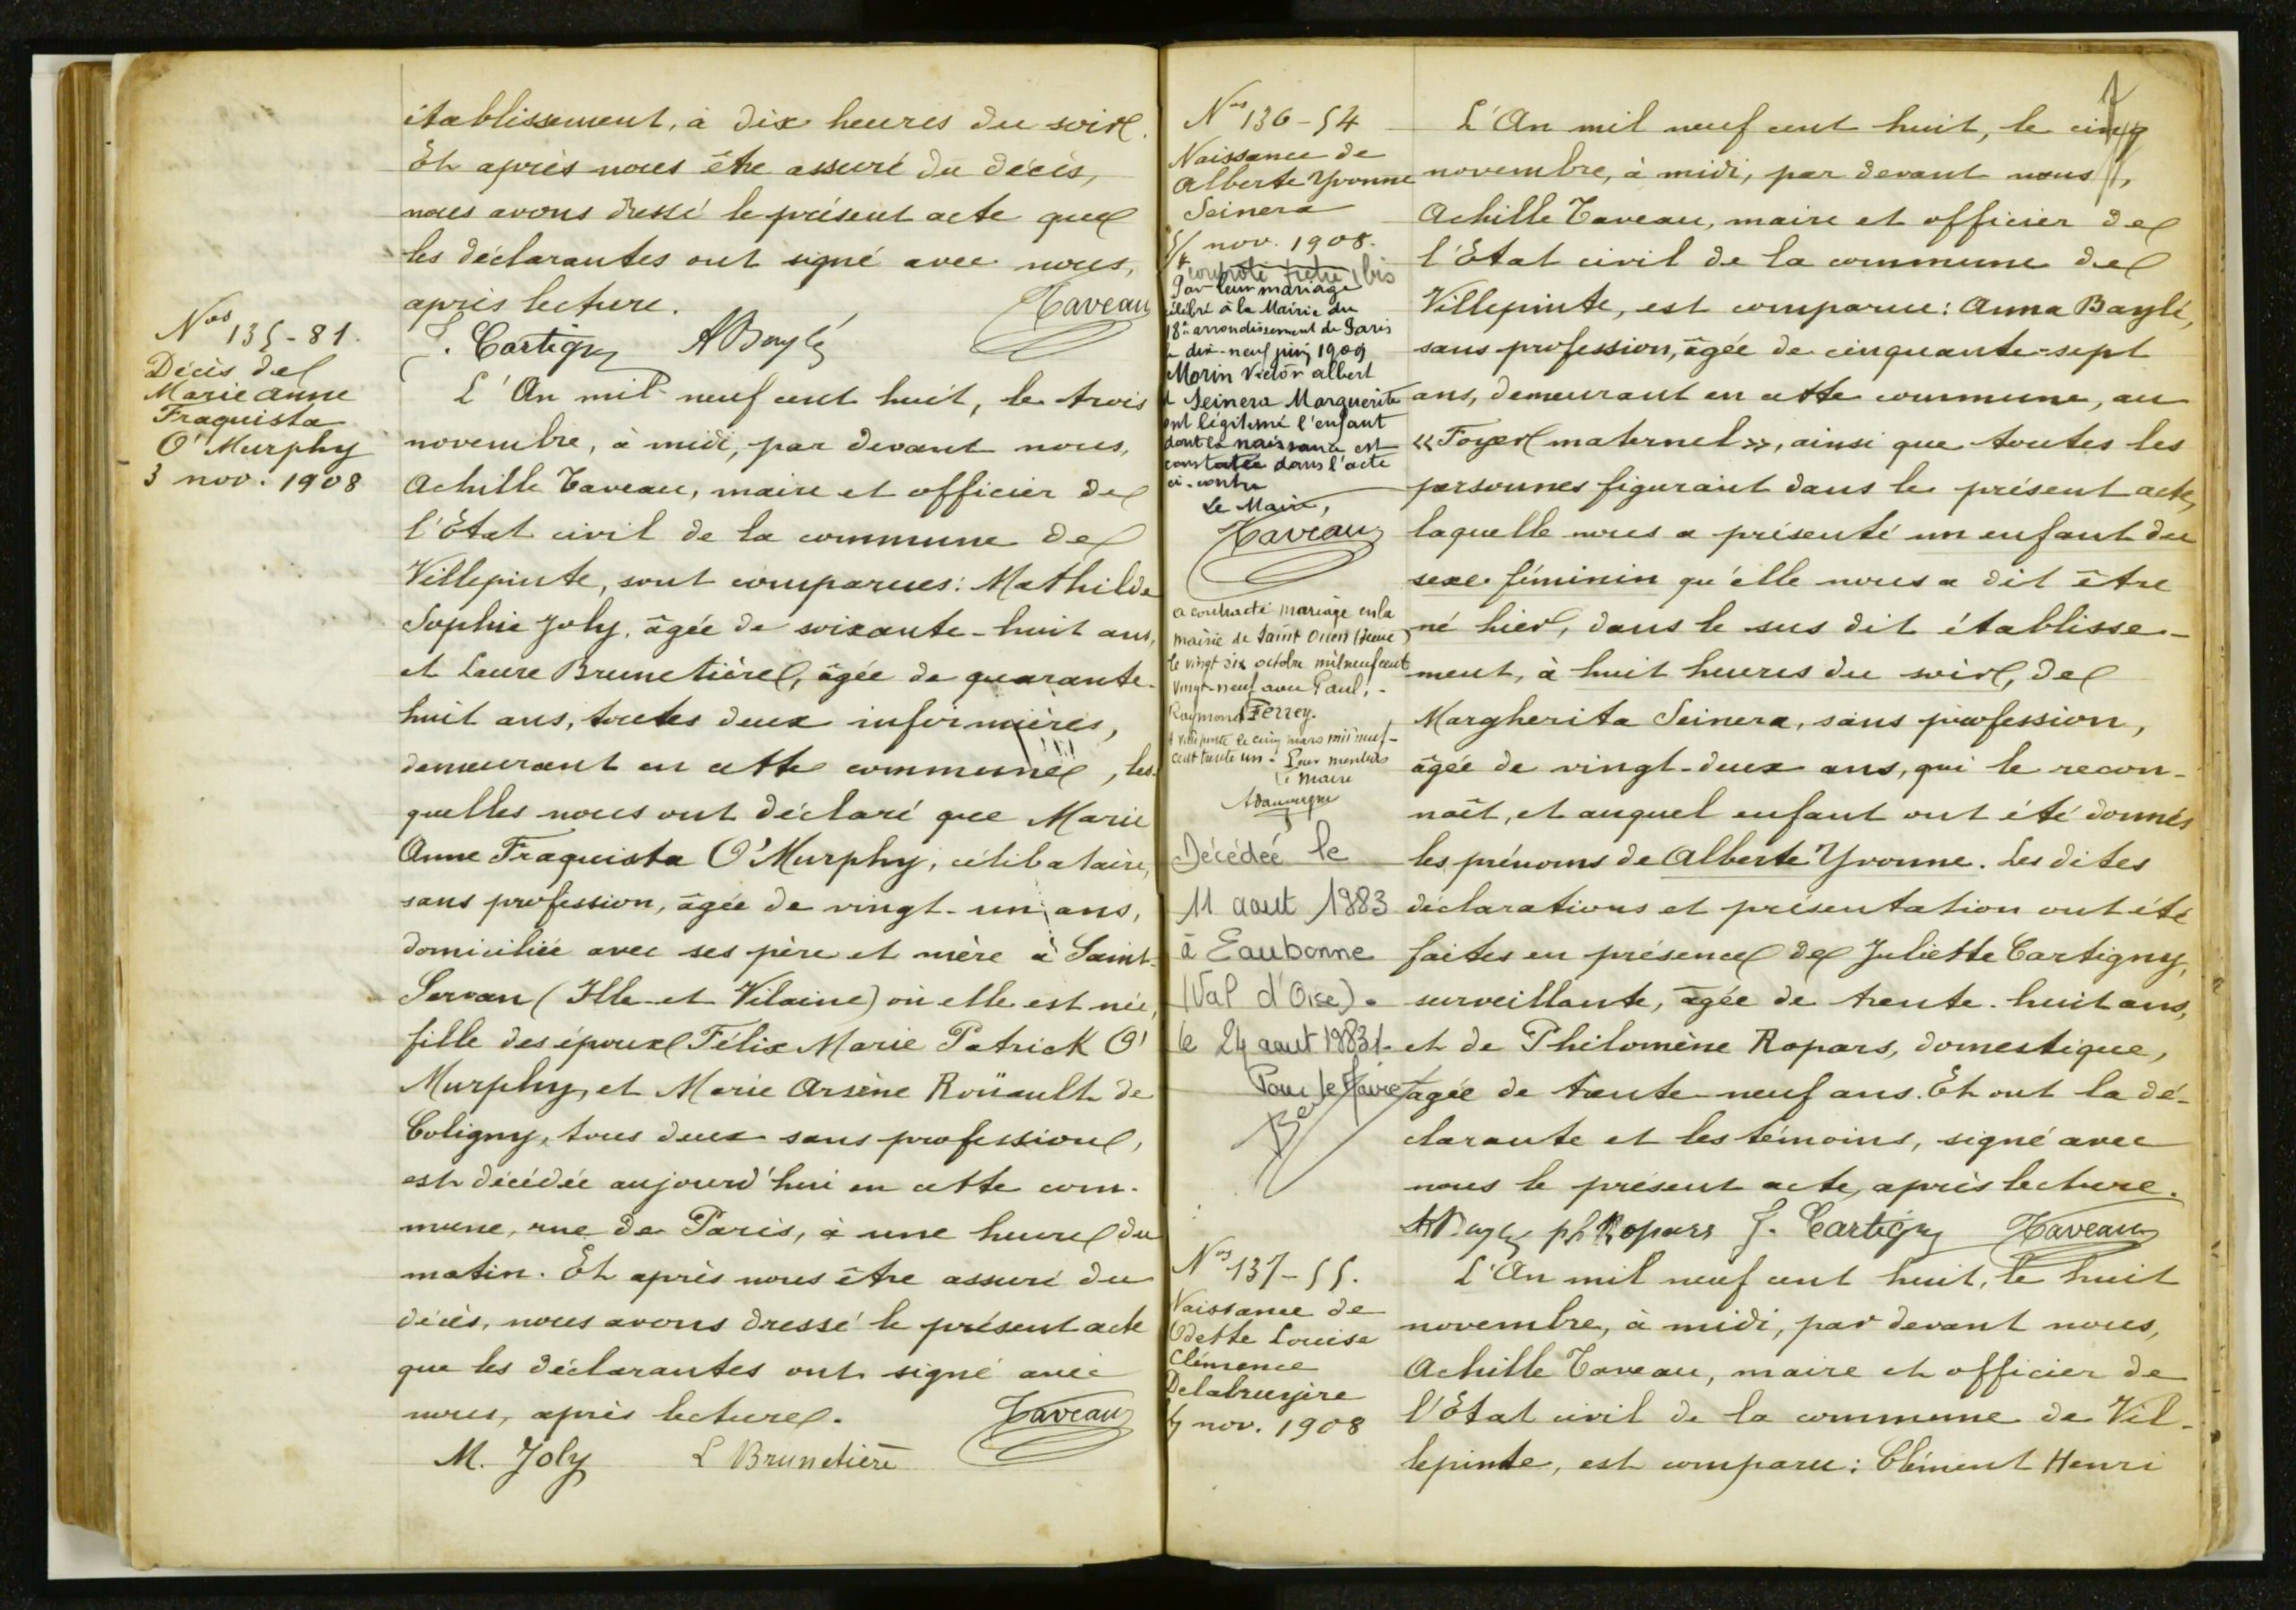 établissement, à dix heures du soir.
Et après nous être assuré du décès,
nous avons dressé le présent acte que
les déclarantes ont signé avec nous,
après lecture. Taveau
J. Cartigny ABaylé
Nos 135-81.
Décès de
Marie Anne
Fraquista
O'Murphy
3 nov. 1908
L'An mil neuf cent huit, le trois
novembre, à midi, par devant nous,
Achille Taveau, maire et officier de
l'Etat civil de la commune de
Villepinte, sont comparues: Mathilde
Sophie Joly, âgée de soixante-huit ans,
et Laure Brunetière, âgée de quarante-
huit ans, toutes deux infirmières,
demeurant en cette commune, les-
quelles nous ont déclaré que Marie
Anne Fraquista O'Murphy, célibataire,
sans profession, âgée de vingt-un ans,
domiciliée avec ses père et mère à Saint-
Servan (Ille-et Vilaine) où elle est née,
fille des époux Félix Marie Patrick O'
Murphy, et Marie Arsène Roüault de
Coligny, tous deux sans profession,
est décédée aujourd'hui en cette com-
mune, rue de Paris, à une heure du
matin. Et après nous être assuré du
décès, nous avons dressé le présent acte
que les déclarantes ont signé avec
nous, après lecture. Taveau
M. Joly L Brunetière
Nos 136-54
Naissance de
Alberte Yvonne
Seinera
nov. 1908.
bis
Par leur mariage
célébré à la Mairie du
18e arrondissement de Paris
le dix-neuf juin 1909
Morin Victor Albert
et Seinera Marguerite
ont légitimé l'enfant
dont la naissance est
constatée dans l'acte
ci-contre
Le Maire,
Taveau
a contracté mariage en la
mairie de Saint Ouen (Seine)
le vingt six octobre mil neuf cent
vingt-neuf avec Paul,-
Raymond Ferrey.
Villepinte le cinq mars mil neuf-
cent trente un-
Maire
Décédée le
11 aout 1983
à Eaubonne
(Val d'Oise).
le 24 aout 1983
Pour le Maire
L'An mil neuf cent huit, le cinq
novembre, à midi, par devant nous,
Achille Taveau, maire et officier de
l'Etat civil de la commune de
Villepinte, est comparue: Anna Baylé,
sans profession, âgée de cinquante-sept
ans, demeurant en cette commune, au
«Foyer maternel», ainsi que toutes les
personnes figurant dans le présent acte,
laquelle nous a présenté un enfant du
sexe féminin qu'elle nous a dit être
né hier, dans le sus dit établisse-
ment, à huit heures du soir, de
Margherita Seinera, sans profession,
âgée de vingt-deux ans, qui le recon-
naît, et auquel enfant ont été donnés
les prénoms de Alberte Yvonne. Les dites
déclarations et présentation ont été
faites en présence de Juliette Cartigny,
surveillante, âgée de trente-huit ans,
et de Philomène Ropars, domestique,
âgée de trente-neuf ans. Et ont la dé-
clarante et les témoins, signé avec
nous le présent acte, après lecture.
ABaylé ph Ropars J. Cartigny Taveau
Nos 137-55.
Naissance de
Odette Louise
Clémence
Delabruyère
nov. 1908
L'An mil neuf cent huit, le huit
novembre, à midi, par devant nous,
Achille Taveau, maire et officier de
l'Etat civil de la commune de Vil-
lepinte, est comparu: Clément Henri